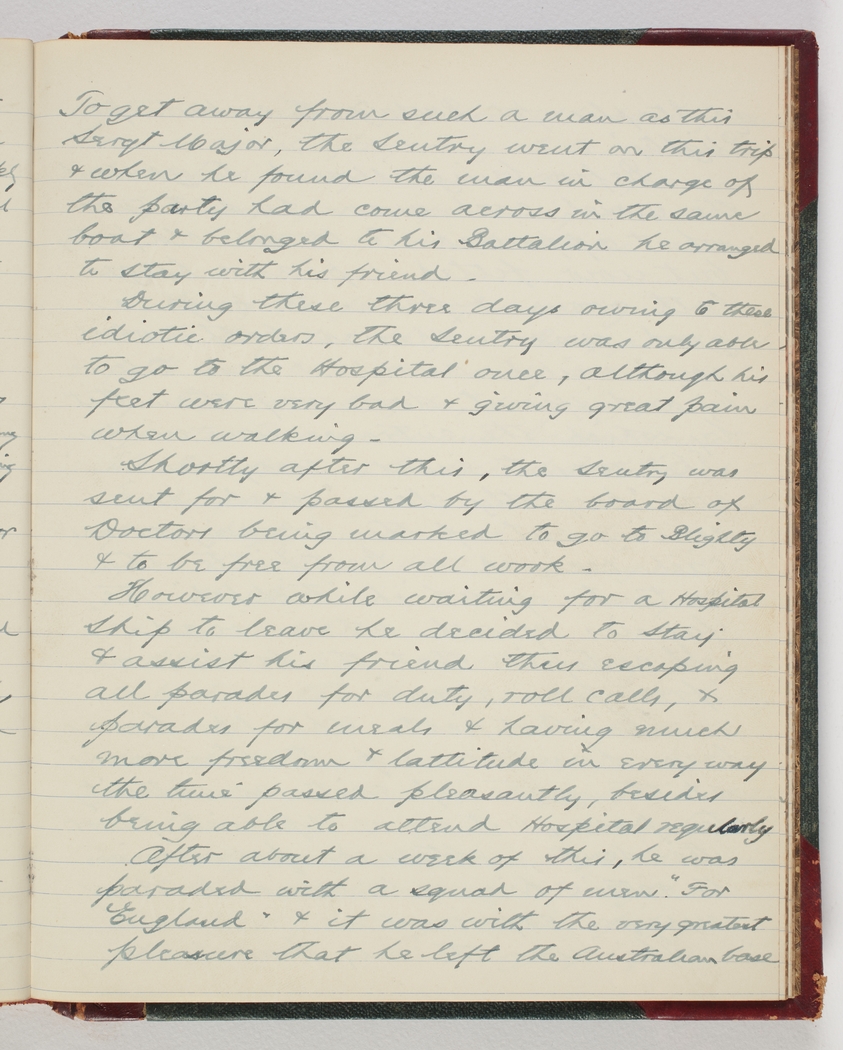 To get away from such a man as this
Sergt Major, the Sentry went on this trip
& when he found the man in charge of
the party had come across in the same
boat & belonged to his Battalion he arranged
to stay with his friend -
During these three days owing to these
idiotic orders, the Sentry was only able
to go to the Hospital once, although his
feet were very bad & giving great pain
when walking -
Shortly after this, the Sentry was
sent for & passed by the board of
Doctors being marked to go to Blighty
& to be free from all work -
However while waiting for a Hospital
Ship to leave he decided to stay
& assist his friend thus escaping
all parades for duty, roll calls, &
parades for meals & having much
more freedom & lattitude in every way
the time passed pleasantly, besides
being able to attend Hospital regularly
After about a week of this, he was
paraded with a squad of men "For
England" & it was with the very greatest
pleasure that he left the Australian base